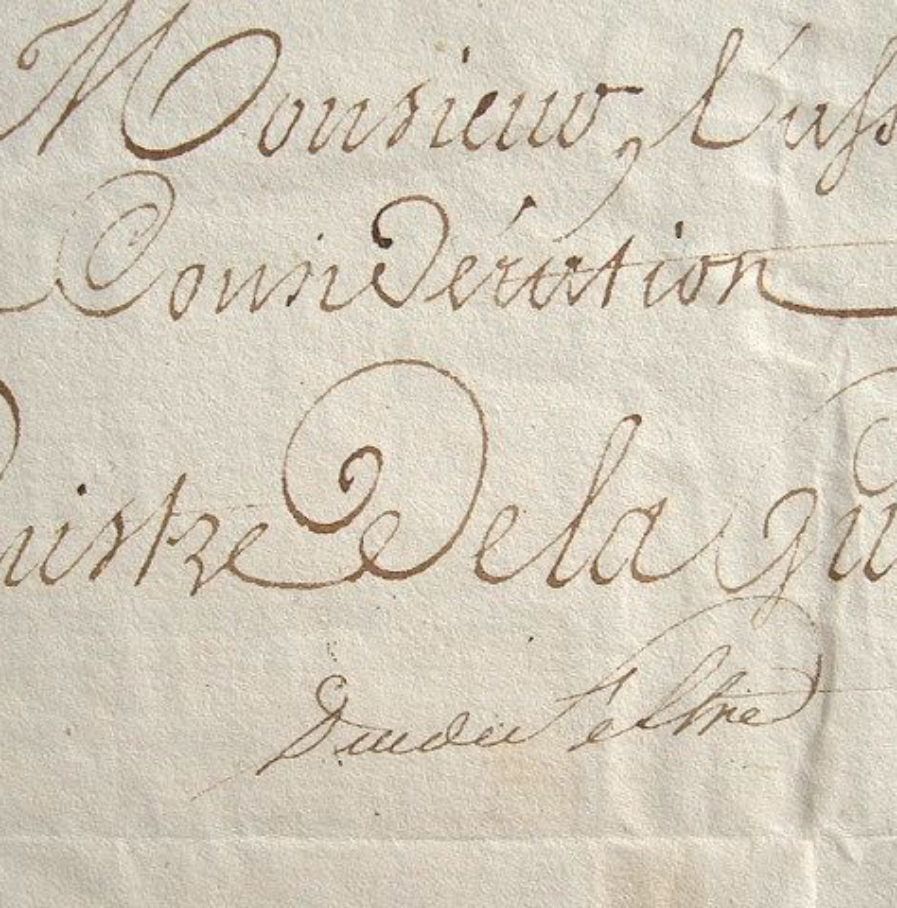 Monsieur, L'ass
Considération
nistre De la Gu
Duc de Feltre